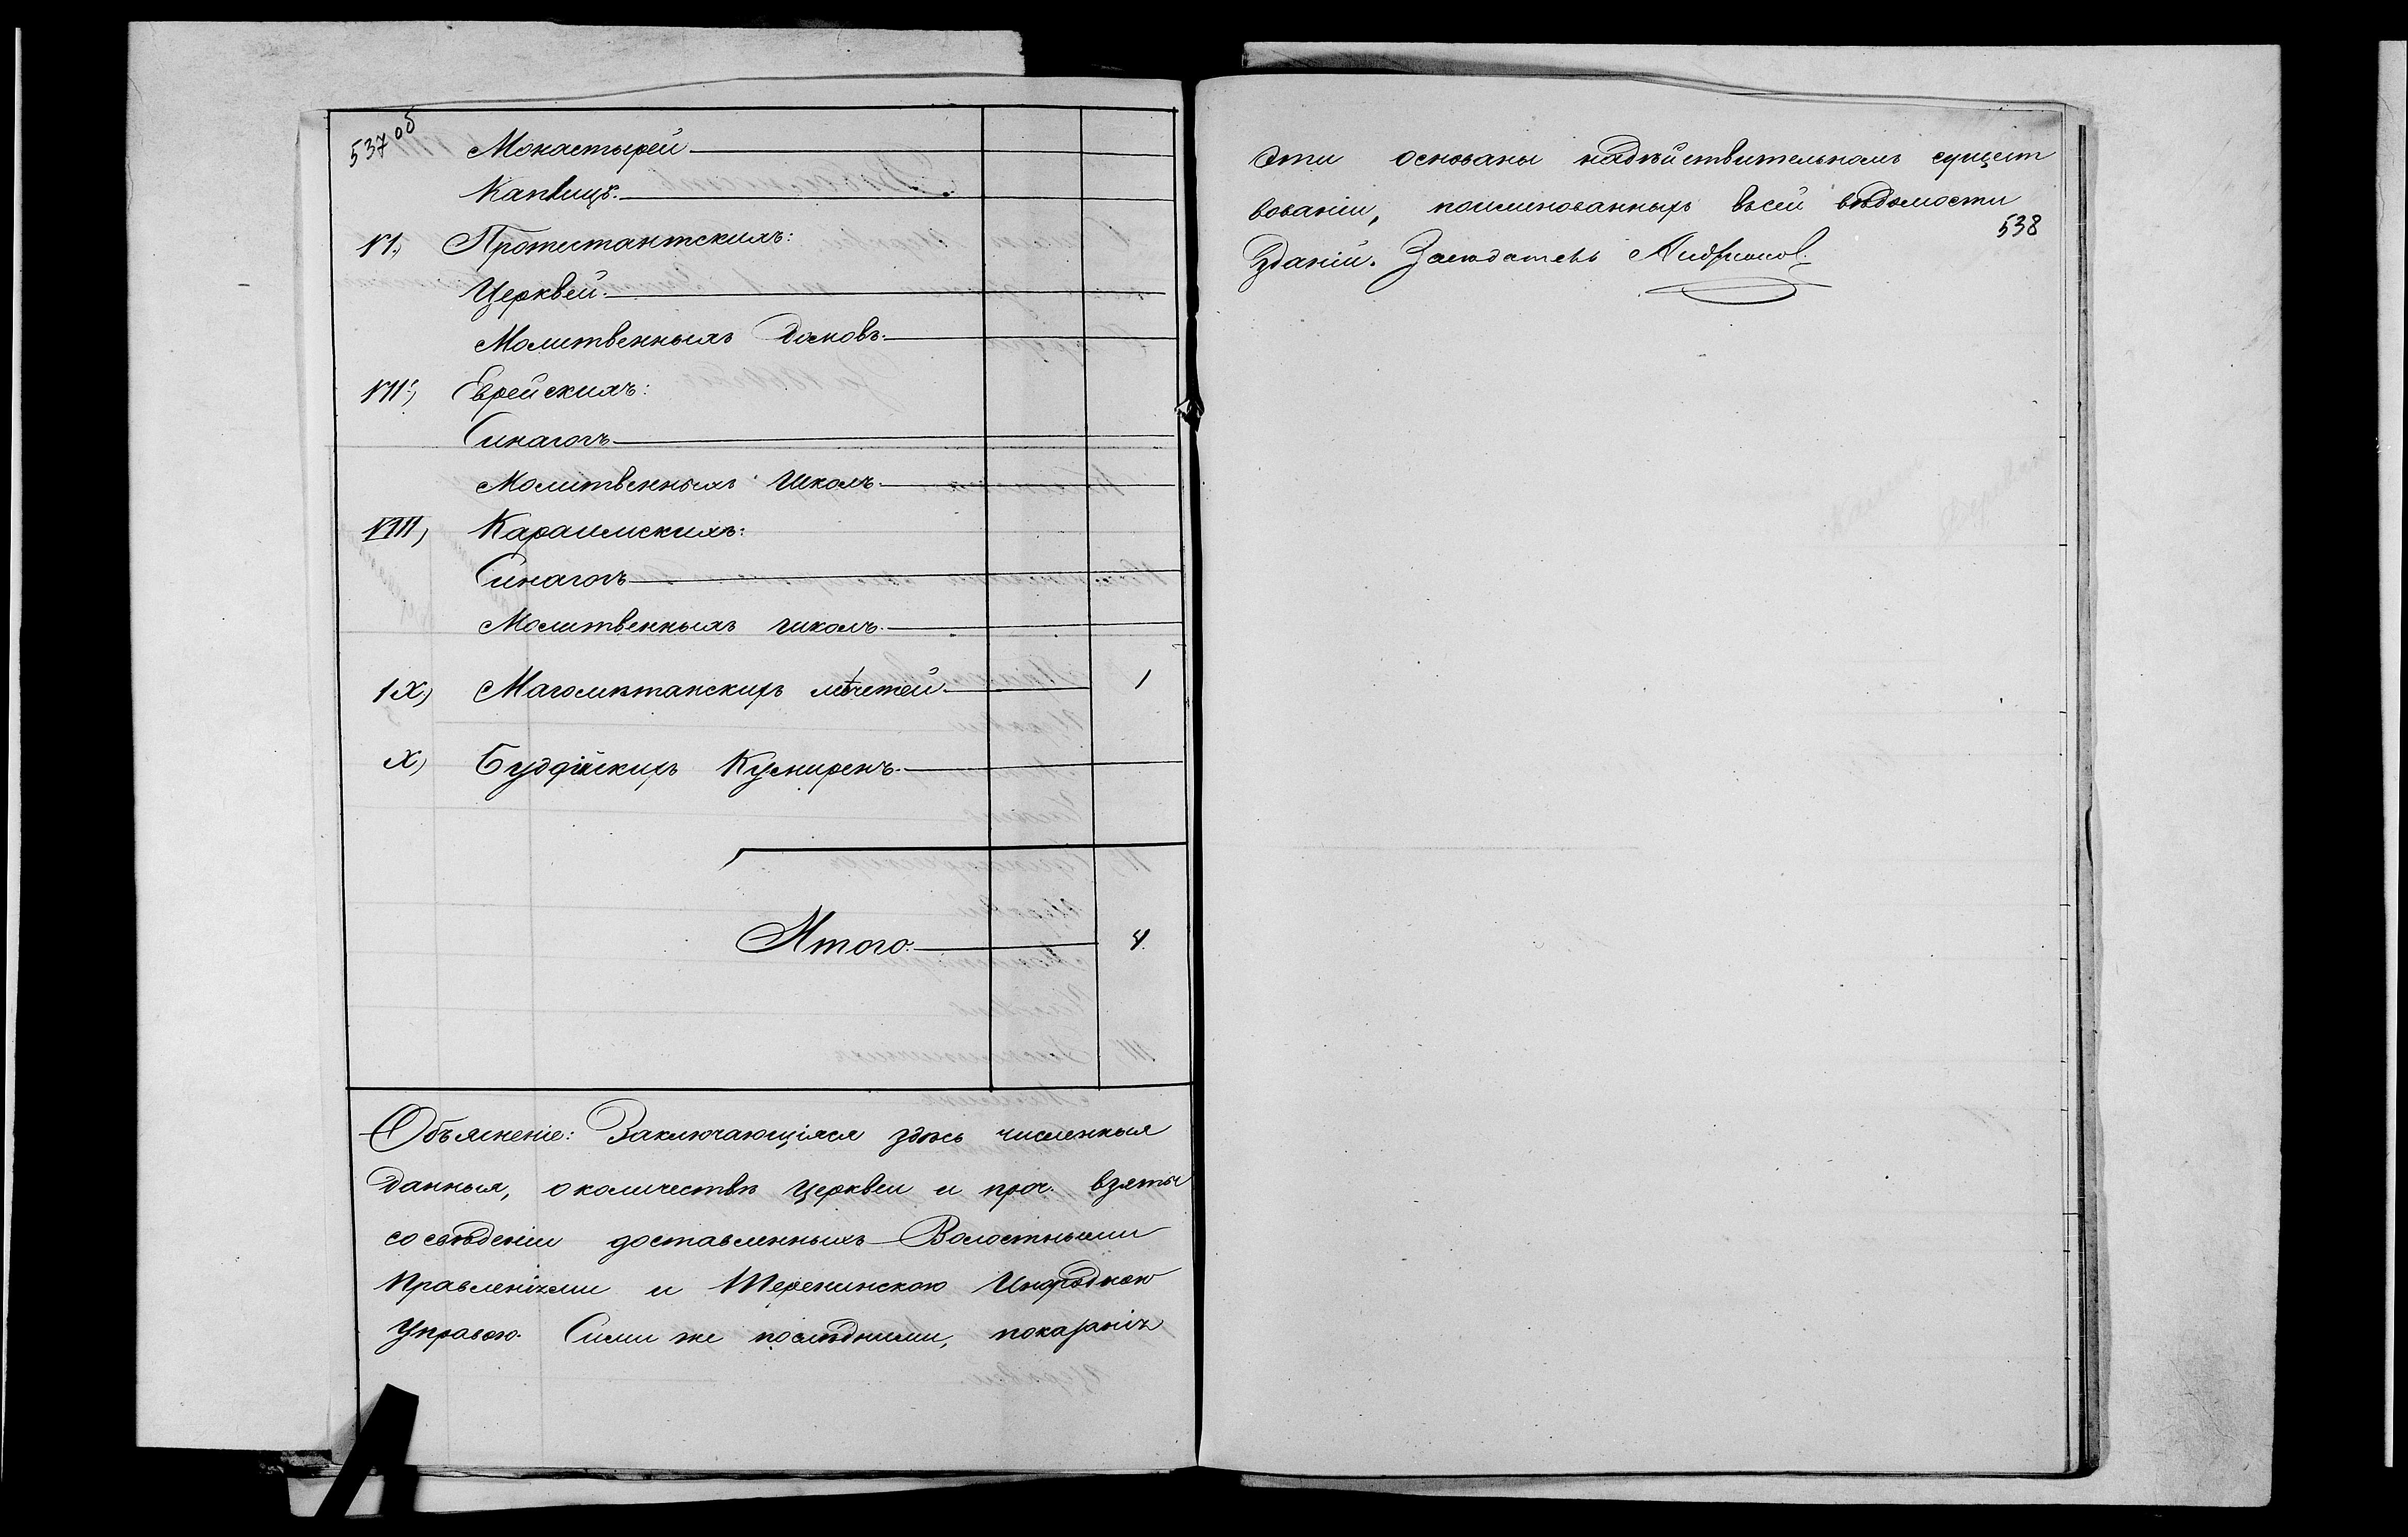 537 об
Монастырей
Каплицъ.
VI.) Протестантскихъ:
Церквей.
Молитвенныхъ Домовъ.
VII.) Еврейскихъ:
Синагогъ
Молитвенныхъ Школъ.
VIII) Караимскихъ:
Синагогъ
Молитвенныхъ школъ.
IX.) Магометанскихъ мѣчетей. 1
X) Буддійскихъ Кумиренъ.
Итого. 4.
Объясненіе: Заключающіяся здѣсь численныя
данныя, о количествѣ церквей и проч. взяты
со свѣдѣній доставленныхъ Волостными
Правленіями и Инородною
Управою. Сими же послѣдними, показанія
эти основаны на дѣйствительномъ сущест
вованіи, поименованныхъ въ сей вѣдомости
538
зданій. Засѣдатель